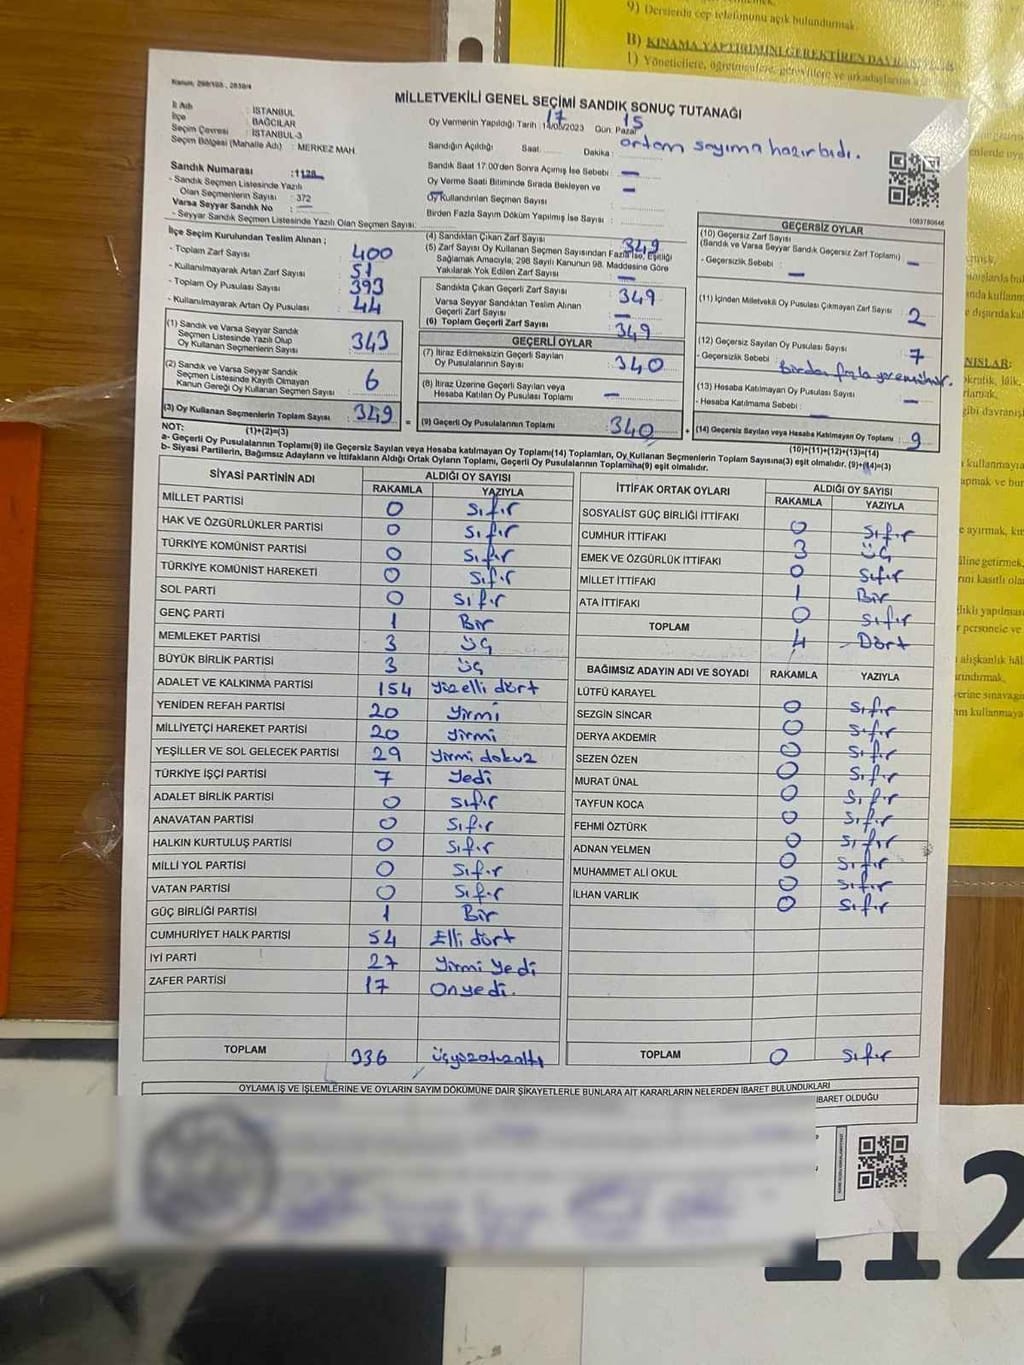 9) Derslerde cep telefonunu açık bulundurmak.
B) KINAMA YAPTIRIMINI GEREKTİREN
1) Yöneticilere, öğretmenlere, görevlilere ve arkadaşlarına
MİLLETVEKİLİ GENEL SEÇİMİ SANDIK SONUÇ TUTANAĞI
İl Adı : İSTANBUL
İlçe : BAĞCILAR
Seçim Çevresi : İSTANBUL-3
Seçim Bölgesi (Mahalle Adı) : MERKEZ MAH.
Oy Vermenin Yapıldığı Tarih : 14/05/2023 Gün: Pazar
Sandığın Açıldığı Saat: 17 Dakika: 15 ortam sayıma hazırdı.
Sandık Saat 17.00'den Sonra Açımış İse Sebebi : —
Oy Verme Saati Bitiminde Sırada Bekleyen ve
Oy Kullandırılan Seçmen Sayısı : —
Birden Fazla Sayım Döküm Yapılmış İse Sayısı :
Sandık Numarası : 1128
- Sandık Seçmen Listesinde Yazılı
Olan Seçmenlerin Sayısı : 372
Varsa Seyyar Sandık No : —
- Seyyar Sandık Seçmen Listesinde Yazılı Olan Seçmen Sayısı:
İlçe Seçim Kurulundan Teslim Alınan ;
- Toplam Zarf Sayısı : 400
- Kullanılmayarak Artan Zarf Sayısı : 51
- Toplam Oy Pusulası Sayısı : 393
- Kullanılmayarak Artan Oy Pusulası : 44
(1) Sandık ve Varsa Seyyar Sandık
Seçmen Listesinde Yazılı Olup
Oy Kullanan Seçmenlerin Sayısı : 343
(2) Sandık ve Varsa Seyyar Sandık
Seçmen Listesinde Kayıtlı Olmayan
Kanun Gereği Oy Kullanan Seçmen Sayısı : 6
(3) Oy Kullanan Seçmenlerin Toplam Sayısı : 349
(1)+(2)=(3)
(4) Sandıktan Çıkan Zarf Sayısı : 349
(5) Zarf Sayısı Oy Kullanan Seçmen Sayısından Fazla İse, Eşitliği
Sağlamak Amacıyla, 298 Sayılı Kanunun 98. Maddesine Göre
Yakılarak Yok Edilen Zarf Sayısı : —
Sandıkta Çıkan Geçerli Zarf Sayısı : 349
Varsa Seyyar Sandıktan Teslim Alınan
Geçerli Zarf Sayısı : —
(6) Toplam Geçerli Zarf Sayısı : 349
GEÇERLİ OYLAR
(7) İtiraz Edilmeksizin Geçerli Sayılan
Oy Pusulalarının Sayısı : 340
(8) İtiraz Üzerine Geçerli Sayılan veya
Hesaba Katılan Oy Pusulası Toplamı : —
(9) Geçerli Oy Pusulalarının Toplamı : 340
1083780646
GEÇERSİZ OYLAR
(10) Geçersiz Zarf Sayısı
(Sandık ve Varsa Seyyar Sandık Geçersiz Zarf Toplamı) : —
- Geçersizlik Sebebi : —
(11) İçinden Milletvekili Oy Pusulası Çıkmayan Zarf Sayısı : 2
(12) Geçersiz Sayılan Oy Pusulası Sayısı : 7
- Geçersizlik Sebebi : Birden fazla
(13) Hesaba Katılmayan Oy Pusulası Sayısı : —
- Hesaba Katılmama Sebebi : —
(14) Geçersiz Sayılan veya Hesaba Katılmayan Oy Toplamı : 9
(10)+(11)+(12)+(13)=(14)
NOT:
a- Geçerli Oy Pusulalarının Toplamı(9) ile Geçersiz Sayılan veya Hesaba Katılmayan Oy Toplamı(14) Toplamları, Oy Kullanan Seçmenlerin Toplam Sayısına(3) eşit olmalıdır. (9)+(14)=(3)
b- Siyasi Partilerin, Bağımsız Adayların ve İttifakların Aldığı Ortak Oyların Toplamı, Geçerli Oy Pusulalarının Toplamına(9) eşit olmalıdır.
SİYASİ PARTİNİN ADI ALDIĞI OY SAYISI
RAKAMLA YAZIYLA
MİLLET PARTİSİ 0 Sıfır
HAK VE ÖZGÜRLÜKLER PARTİSİ 0 Sıfır
TÜRKİYE KOMÜNİST PARTİSİ 0 Sıfır
TÜRKİYE KOMÜNİST HAREKETİ 0 Sıfır
SOL PARTİ 0 Sıfır
GENÇ PARTİ 1 Bir
MEMLEKET PARTİSİ 3 Üç
BÜYÜK BİRLİK PARTİSİ 3 Üç
ADALET VE KALKINMA PARTİSİ 154 Yüzelli dört
YENİDEN REFAH PARTİSİ 20 Yirmi
MİLLİYETÇİ HAREKET PARTİSİ 20 Yirmi
YEŞİLLER VE SOL GELECEK PARTİSİ 29 Yirmi dokuz
TÜRKİYE İŞÇİ PARTİSİ 7 Yedi
ADALET BİRLİK PARTİSİ 0 Sıfır
ANAVATAN PARTİSİ 0 Sıfır
HALKIN KURTULUŞ PARTİSİ 0 Sıfır
MİLLİ YOL PARTİSİ 0 Sıfır
VATAN PARTİSİ 0 Sıfır
GÜÇ BİRLİĞİ PARTİSİ 1 Bir
CUMHURİYET HALK PARTİSİ 54 Elli dört
İYİ PARTİ 27 Yirmi Yedi
ZAFER PARTİSİ 17 Onyedi.
TOPLAM 336 Üçyüzotuzaltı
İTTİFAK ORTAK OYLARI ALDIĞI OY SAYISI
RAKAMLA YAZIYLA
SOSYALİST GÜÇ BİRLİĞİ İTTİFAKI 0 Sıfır
CUMHUR İTTİFAKI 3 Üç
EMEK VE ÖZGÜRLÜK İTTİFAKI 0 Sıfır
MİLLET İTTİFAKI 1 Bir
ATA İTTİFAKI 0 Sıfır
TOPLAM 4 Dört
BAĞIMSIZ ADAYIN ADI VE SOYADI RAKAMLA YAZIYLA
LÜTFÜ KARAYEL 0 Sıfır
SEZGİN SİNCAR 0 Sıfır
DERYA AKDEMİR 0 Sıfır
SEZEN ÖZEN 0 Sıfır
MURAT ÜNAL 0 Sıfır
TAYFUN KOCA 0 Sıfır
FEHMİ ÖZTÜRK 0 Sıfır
ADNAN YELMEN 0 Sıfır
MUHAMMET ALİ OKUL 0 Sıfır
İLHAN VARLIK 0 Sıfır
TOPLAM 0 Sıfır
OYLAMA İŞ VE İŞLEMLERİNE VE OYLARIN SAYIM DÖKÜMÜNE DAİR ŞİKAYETLERLE BUNLARA AİT KARARLARIN NELERDEN İBARET BULUNDUKLARI
İBARET OLDUĞU
112